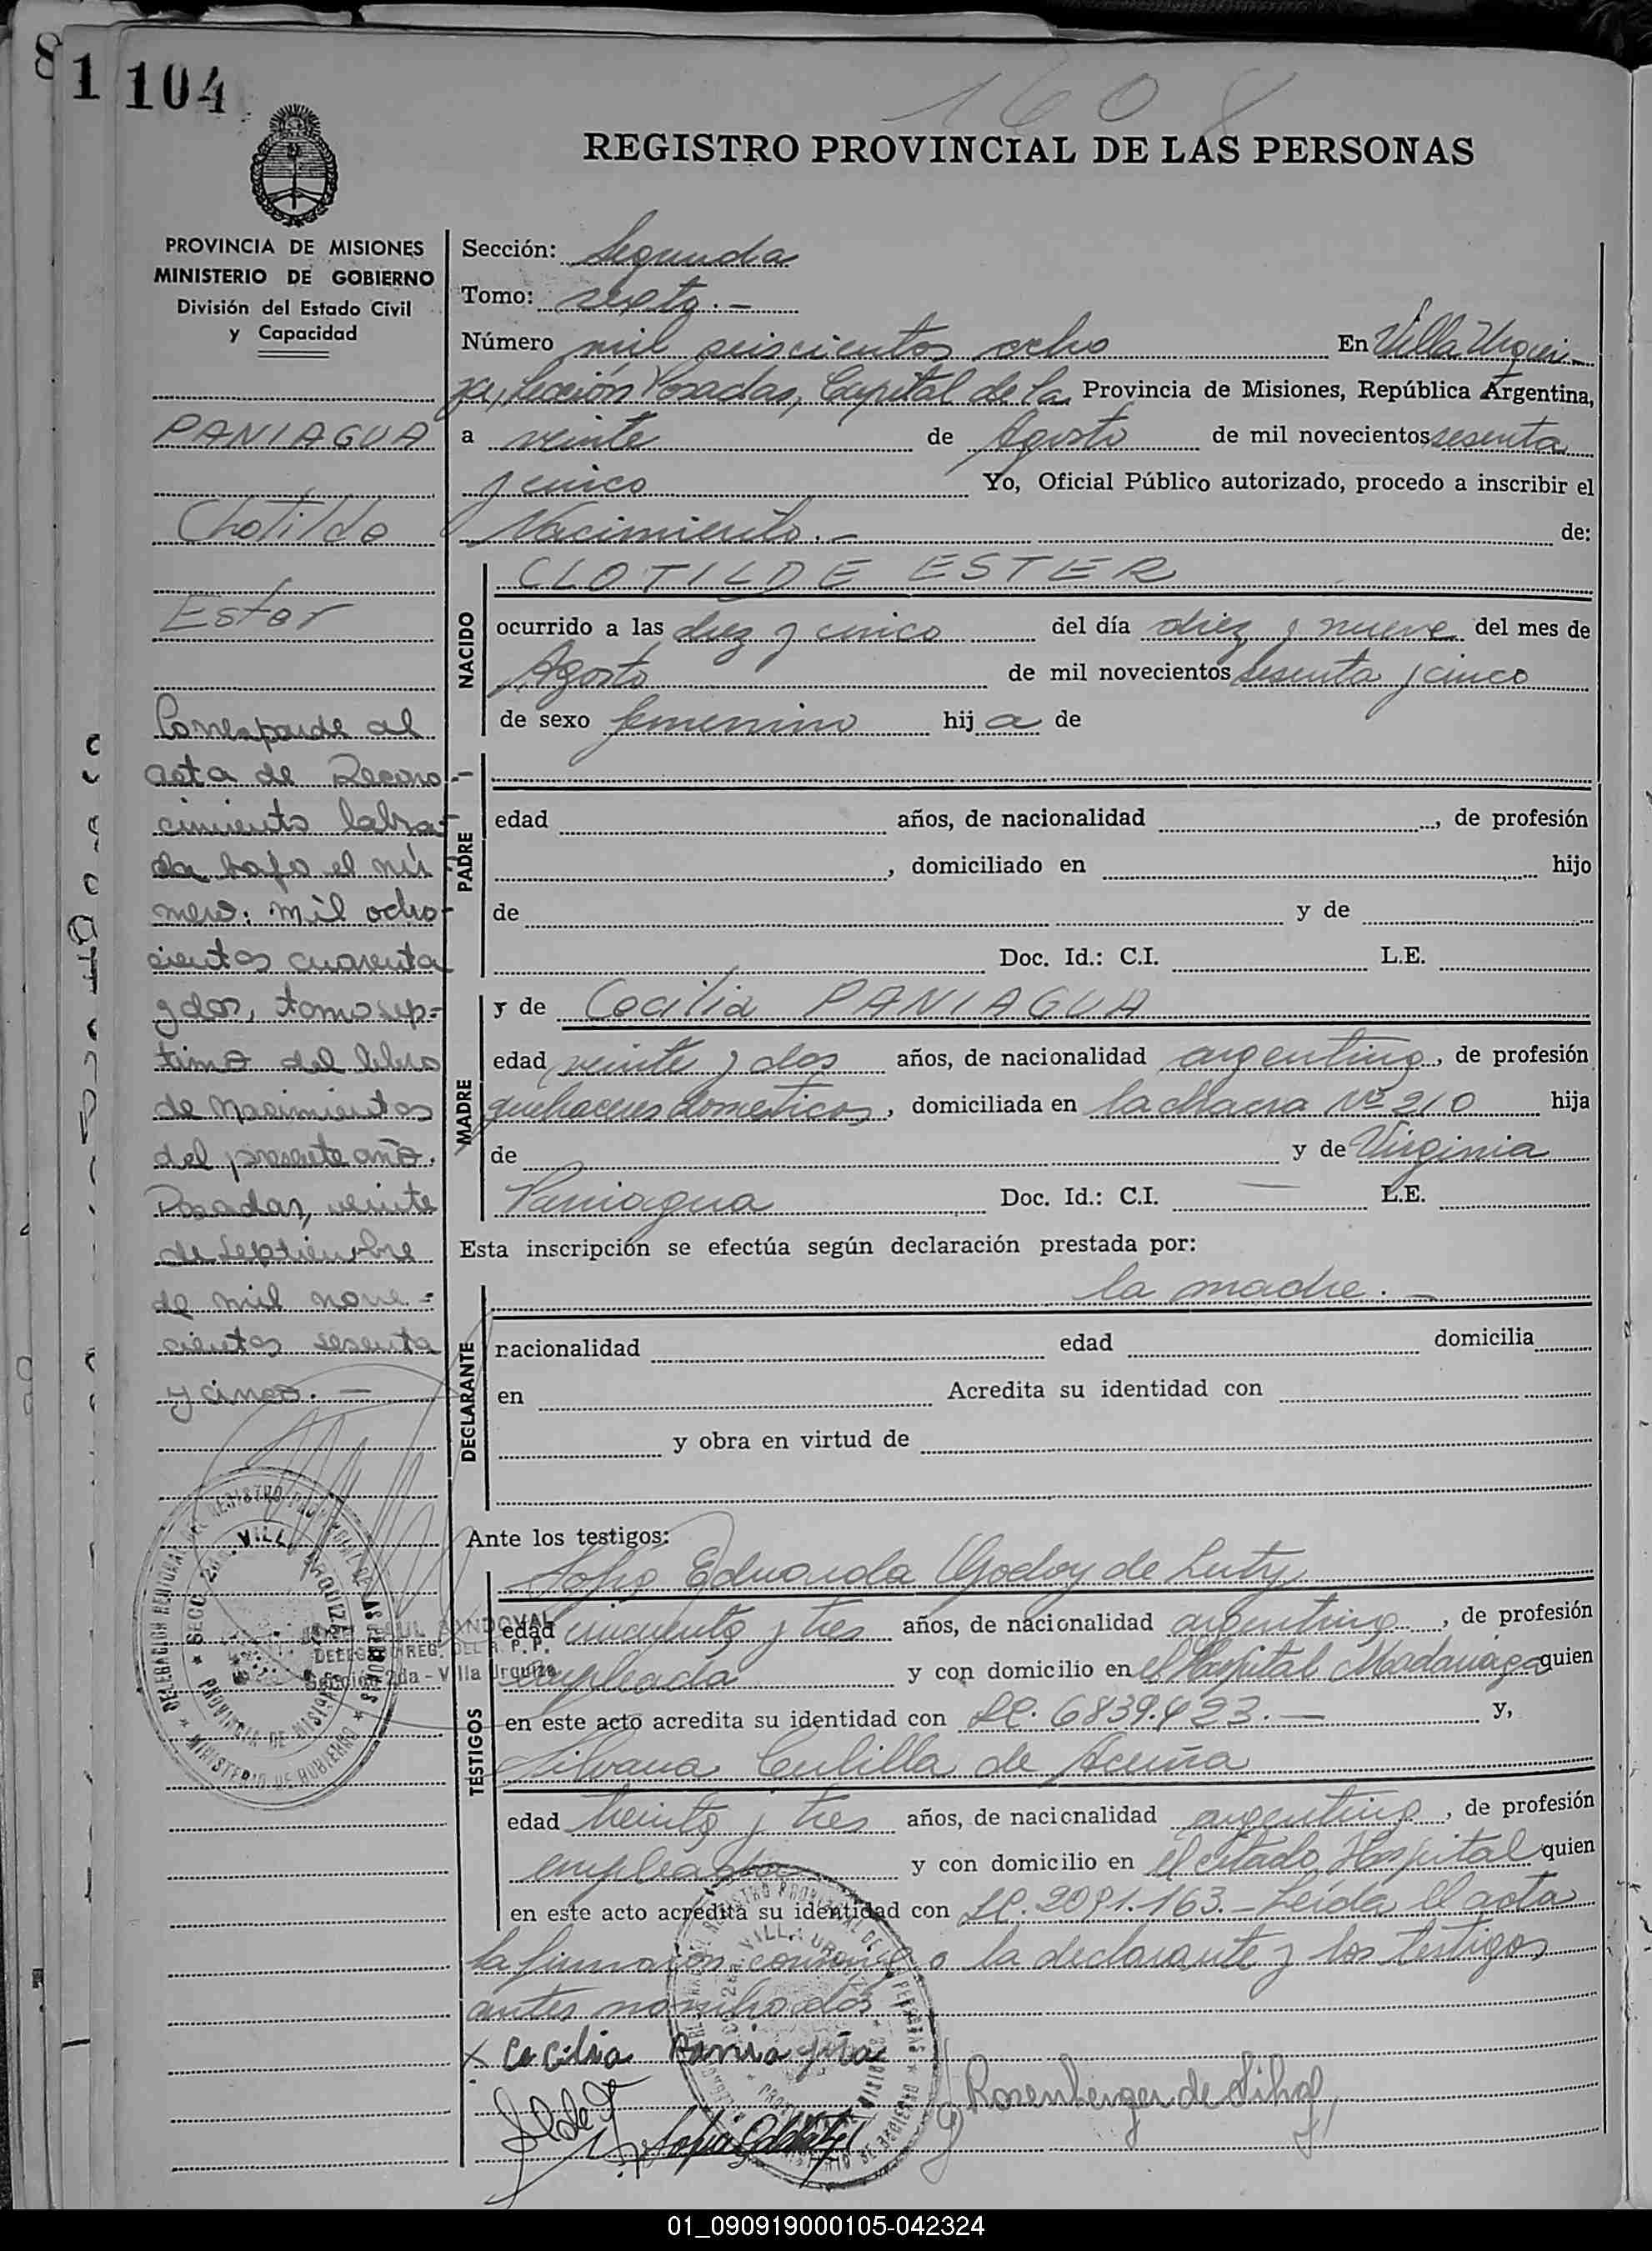 8
1 104
1608
REGISTRO PROVINCIAL DE LAS PERSONAS
PROVINCIA DE MISIONES
MINISTERIO DE GOBIERNO
División del Estado Civil
y Capacidad
PANIAGUA
Clotilde
Ester
Corresponde al
acta de Recono-
cimiento labra-
da bajo el nú-
mero: mil ocho-
cientos cuarenta
y dos, tomo sep=
timo del libro
de Nacimientos
del presente año.
Posadas, veinte
de Septiembre
de mil nove=
cientos sesenta
y cinco.—
Sección: Segunda
Tomo: sexto.—
Número mil seiscientos ocho En Villa Urqui-
za, Sección Posadas, Capital de la Provincia de Misiones, República Argentina,
a veinte de Agosto de mil novecientos sesenta
y cinco Yo, Oficial Público autorizado, procedo a inscribir el
Nacimiento.— de:
NACIDO
CLOTILDE ESTER
ocurrido a las diez y cinco del día diez y nueve del mes de
Agosto de mil novecientos sesenta y cinco
de sexo femenino hij a de
PADRE
edad años, de nacionalidad , de profesión
, domiciliado en hijo
de y de
Doc. Id.: C.I. L.E.
MADRE
y de Cecilia PANIAGUA
edad veinte y dos años, de nacionalidad argentina, de profesión
quehaceres domesticos, domiciliada en la chacra Nº 210 hija
de y de Virginia
Paniagua Doc. Id.: C.I. — L.E.
Esta inscripción se efectúa según declaración prestada por:
DECLARANTE
la madre.—
nacionalidad edad domicilia
en Acredita su identidad con
y obra en virtud de
Ante los testigos:
TESTIGOS
Sofia Eduarda Godoy de Luty
edad cincuenta y tres años, de nacionalidad argentina, de profesión
empleada y con domicilio en el Hospital Madariaga quien
en este acto acredita su identidad con LC. 6839.423.— y,
Silvana Cubilla de Acuña
edad treinta y tres años, de nacionalidad argentina, de profesión
empleada y con domicilio en el citado Hospital quien
en este acto acredita su identidad con LC. 2091.163.— Leída el acta
la firmaron conmigo la declarante y los testigos
antes nombrados
x Cecilia Paniagua
Rosenberger de
DELEGACION REGIONAL DEL REGISTRO PROVINCIAL DE LAS PERSONAS
SECC. 2da. VILLA URQUIZA
PROVINCIA DE MISIONES
MINISTERIO DE GOBIERNO
RAUL SANDOVAL
Sección 2da - Villa Urquiza
01_090919000105-042324